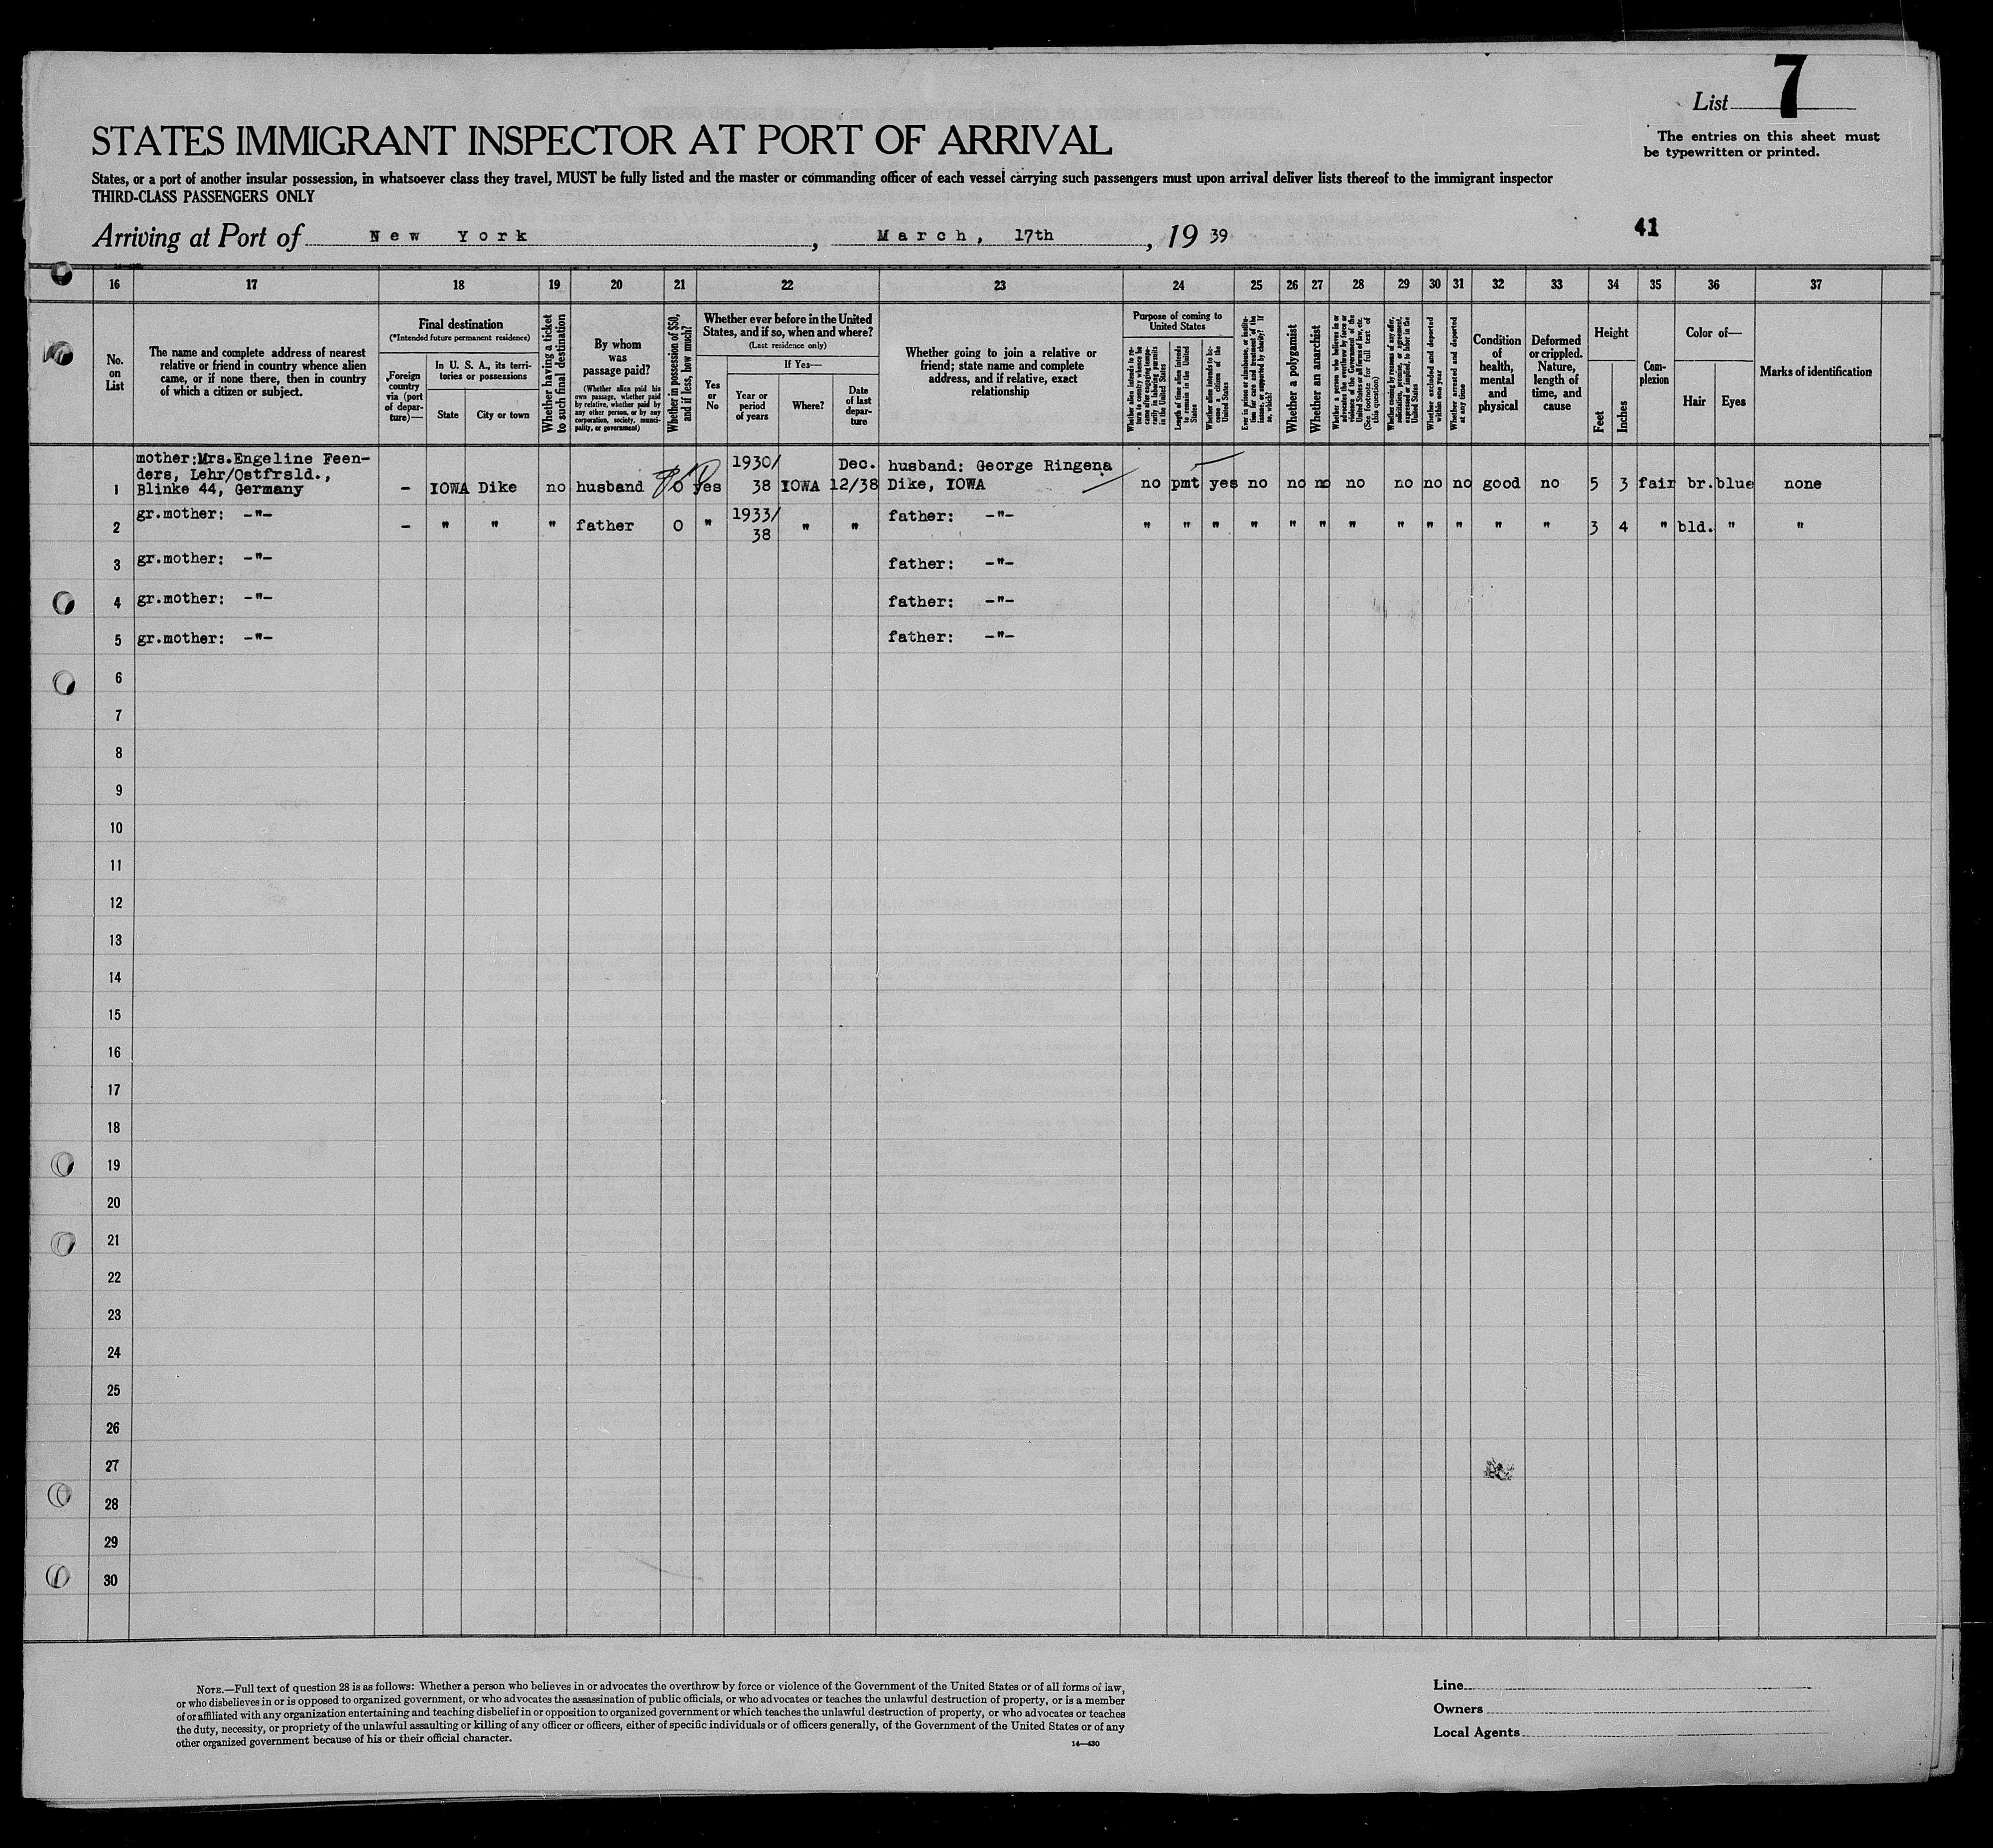 List 7
The entries on this sheet must
be typewritten or printed.
STATES IMMIGRANT INSPECTOR AT PORT OF ARRIVAL
States, or a port of another insular possession, in whatsoever class they travel, MUST be fully listed and the master or commanding officer of each vessel carrying such passengers must upon arrival deliver lists thereof to the immigrant inspector
THIRD-CLASS PASSENGERS ONLY
Arriving at Port of New York, March, 17th, 19 39
41
16 17 18 19 20 21 22 23 24 25 26 27 28 29 30 31 32 33 34 35 36 37
No.
on
List
The name and complete address of nearest
relative or friend in country whence alien
came, or if none there, then in country
of which a citizen or subject.
Final destination
(*Intended future permanent residence)
Foreign
country
via (port
of depar-
ture)—
In U. S. A., its terri-
tories or possessions
State
City or town
Whether having a ticket
to such final destination
By whom
was
passage paid?
(Whether alien paid his
own passage, whether paid
by relative, whether paid by
any other person, or by any
corporation, society, munici-
pality, or government)
Whether in possession of $50,
and if less, how much?
Whether ever before in the United
States, and if so, when and where?
(Last residence only)
Yes
or
No
If Yes—
Year or
period
of years
Where?
Date
of last
depar-
ture
Whether going to join a relative or
friend; state name and complete
address, and if relative, exact
relationship
Purpose of coming to
United States
Whether alien intends to re-
turn to country whence he
came after engaging tempo-
rarily in laboring pursuits
in the United States
Length of time alien intends
to remain in the United
States
Whether alien intends to be-
come a citizen of the
United States
Ever in prison or almshouse, or institu-
tion for care and treatment of the
insane, or supported by charity? If
so, which?
Whether a polygamist
Whether an anarchist
Whether a person who believes in or
advocates the overthrow by force or
violence of the Government of the
United States or all forms of law, etc.
(See footnote for full text of
this question)
Whether coming by reason of any offer,
solicitation, promise, or agreement,
expressed or implied, to labor in the
United States
Whether excluded and deported
within one year
Whether arrested and deported
at any time
Condition
of
health,
mental
and
physical
Deformed
or crippled.
Nature,
length of
time, and
cause
Height
Feet
Inches
Com-
plexion
Color of—
Hair
Eyes
Marks of identification
mother:Mrs.Engeline Feen- 1930/ Dec. husband: George Ringena
ders, Lehr/Ostfrsld.,
1 Blinke 44, Germany - IOWA Dike no husband 0 yes 38 IOWA 12/38 Dike, IOWA no pmt yes no no no no no no no good no 5 3 fair br. blue none
gr.mother: -"- 1933/ father: -"-
2 - " " " father 0 " 38 " " " " " " " " " " " " " " 3 4 " bld. " "
3 gr.mother: -"- father: -"-
4 gr.mother: -"- father: -"-
5 gr.mother: -"- father: -"-
6
7
8
9
10
11
12
13
14
15
16
17
18
19
20
21
22
23
24
25
26
27
28
29
30
NOTE.—Full text of question 28 is as follows: Whether a person who believes in or advocates the overthrow by force or violence of the Government of the United States or of all forms of law,
or who disbelieves in or is opposed to organized government, or who advocates the assassination of public officials, or who advocates or teaches the unlawful destruction of property, or is a member
of or affiliated with any organization entertaining and teaching disbelief in or opposition to organized government or which teaches the unlawful destruction of property, or who advocates or teaches
the duty, necessity, or propriety of the unlawful assaulting or killing of any officer or officers, either of specific individuals or of officers generally, of the Government of the United States or of any
other organized government because of his or their official character.
14—430
Line
Owners
Local Agents